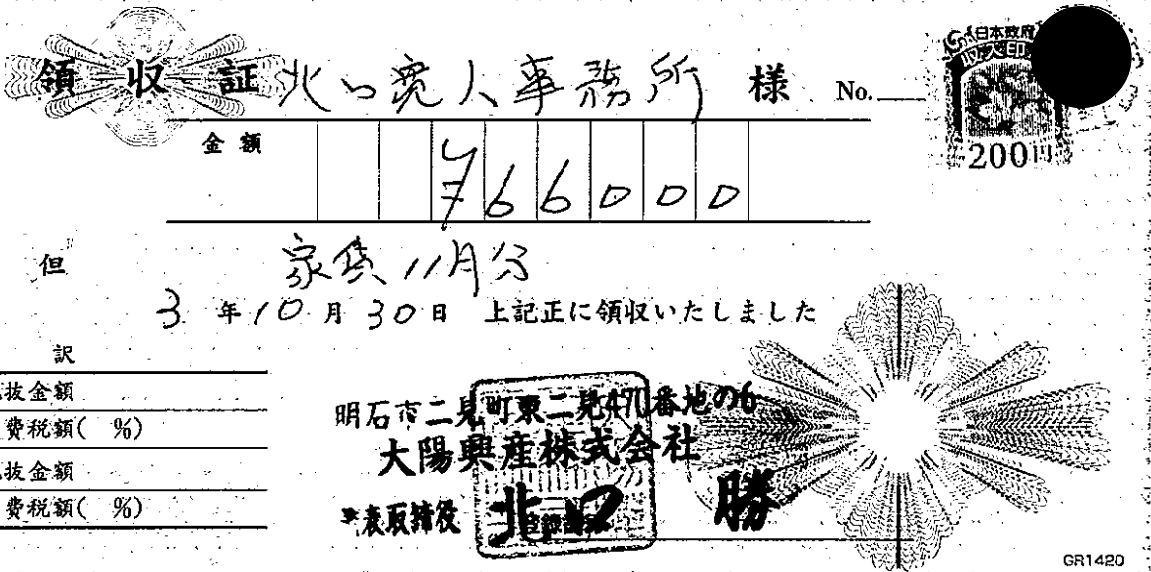 領収証 北口寛人事務所 様 No.
日本政府
収入印
200円
金額 ¥66000
但 家賃11月分
3年10月30日 上記正に領収いたしました
訳
抜金額
費税額( %)
抜金額
費税額( %)
明石市二見町東二見470番地の6
大陽興産株式会社
表取締役 北口 勝
GR1420